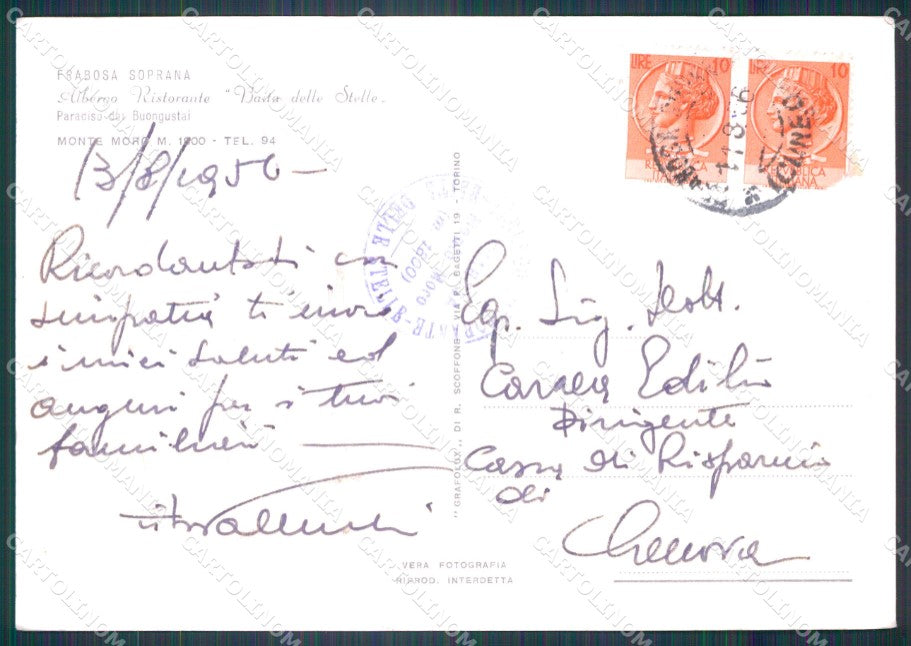 FRABOSA SOPRANA
Albergo Ristorante "Baita delle Stelle"
Paradiso dei Buongustai
MONTE MORO M. 1800 - TEL. 94
13/8/1956 -
Ricordandoti con
simpatia ti invio
i miei saluti ed
auguri per i tuoi
familiari
Eg. Sig. Dott.
Edilio
Dirigente
Cassa di Risparmio
di
Genova
"GRAFOLUX" DI R. SCOFFONE - VIA F. GAGETTI 19 - TORINO
VERA FOTOGRAFIA
RIPROD. INTERDETTA
LIRE 10
REPUBBLICA
ITALIANA
LIRE 10
REPUBBLICA
ITALIANA
(CUNEO)
DELLE STELLE
Moro
CARTOLINOMANIA